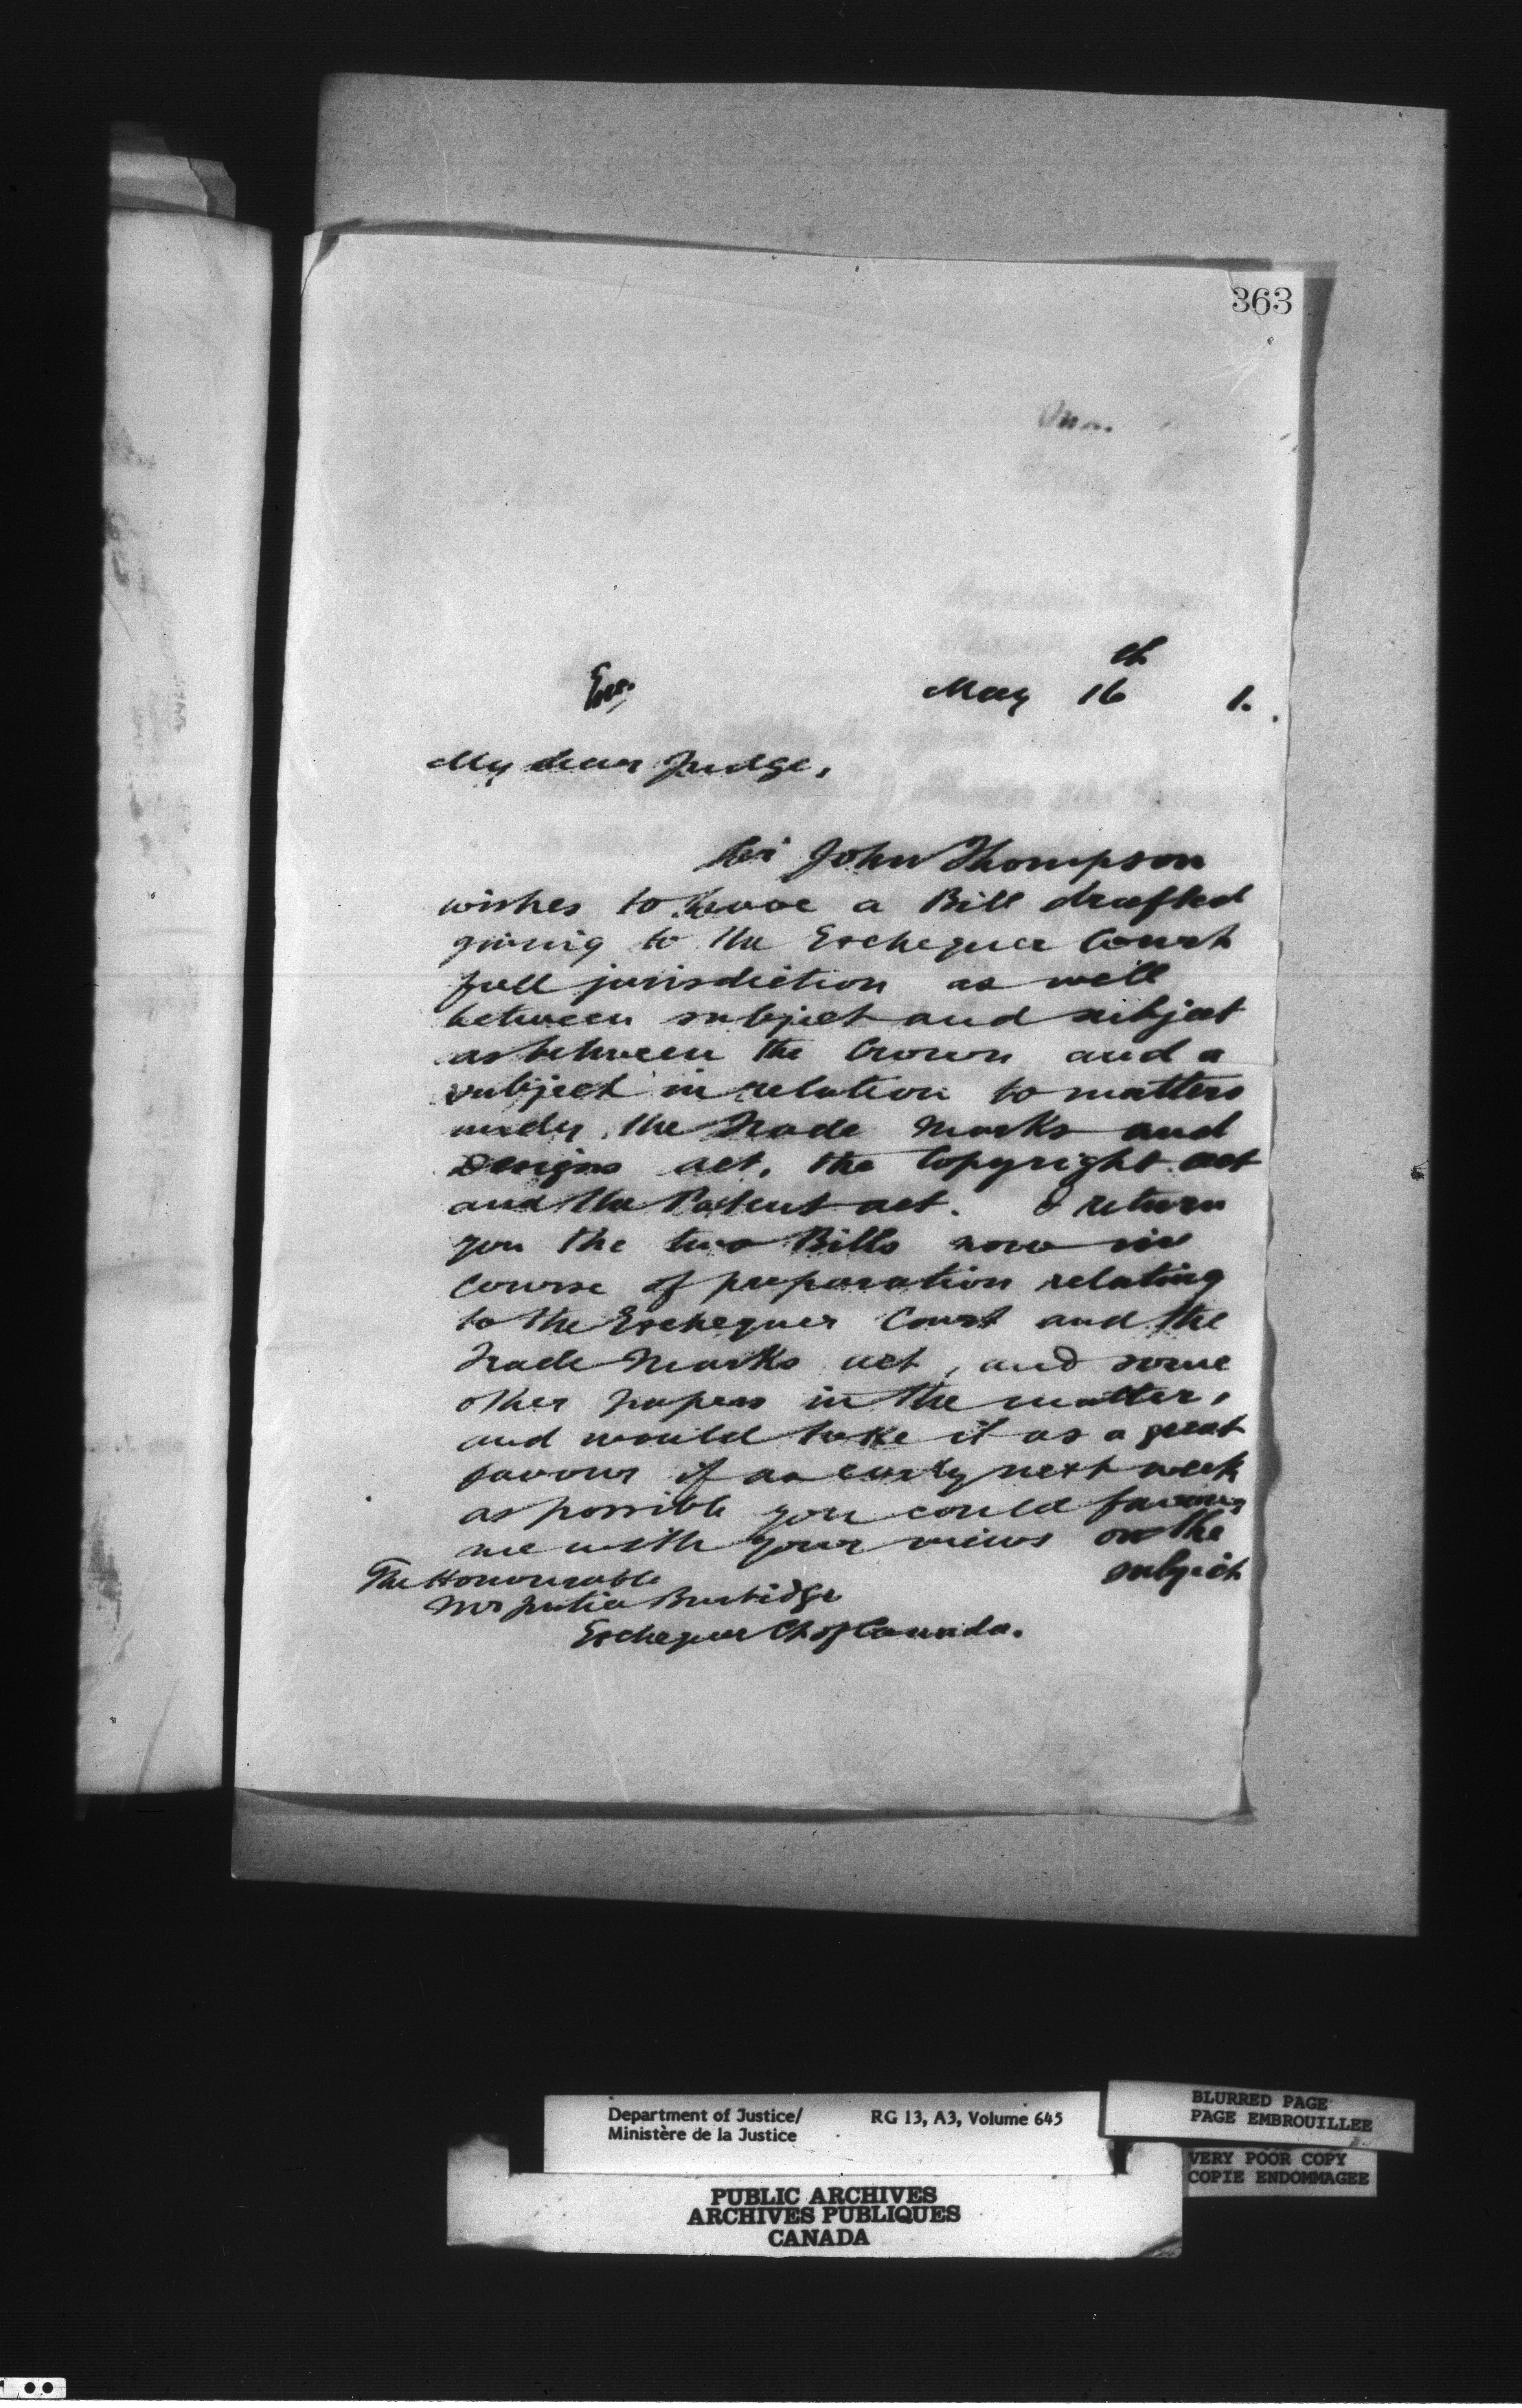 363
th
May 16 1.
My dear Judge,
Sir John Thompson
wishes to have a Bill drafted
giving to the Exchequer Court
full jurisdiction as well
between subject and subject
as between the Crown and a
subject in relation to matters
under the Trade Marks and
Designs act, the Copyright act
and the Patent act. I return
you the two Bills now in
course of preparation relating
to the Exchequer Court and the
Trade Marks act, and some
other papers in the matter,
and would take it as a great
favour if as early next week
as possible you could favour
me with your views on the
subject
The Honourable
Mr Justice Burbidge
Exchequer Ct of Canada.
Department of Justice/ RG 13, A3, Volume 645
Ministère de la Justice
BLURRED PAGE
PAGE EMBROUILLEE
VERY POOR COPY
COPIE ENDOMMAGEE
PUBLIC ARCHIVES
ARCHIVES PUBLIQUES
CANADA